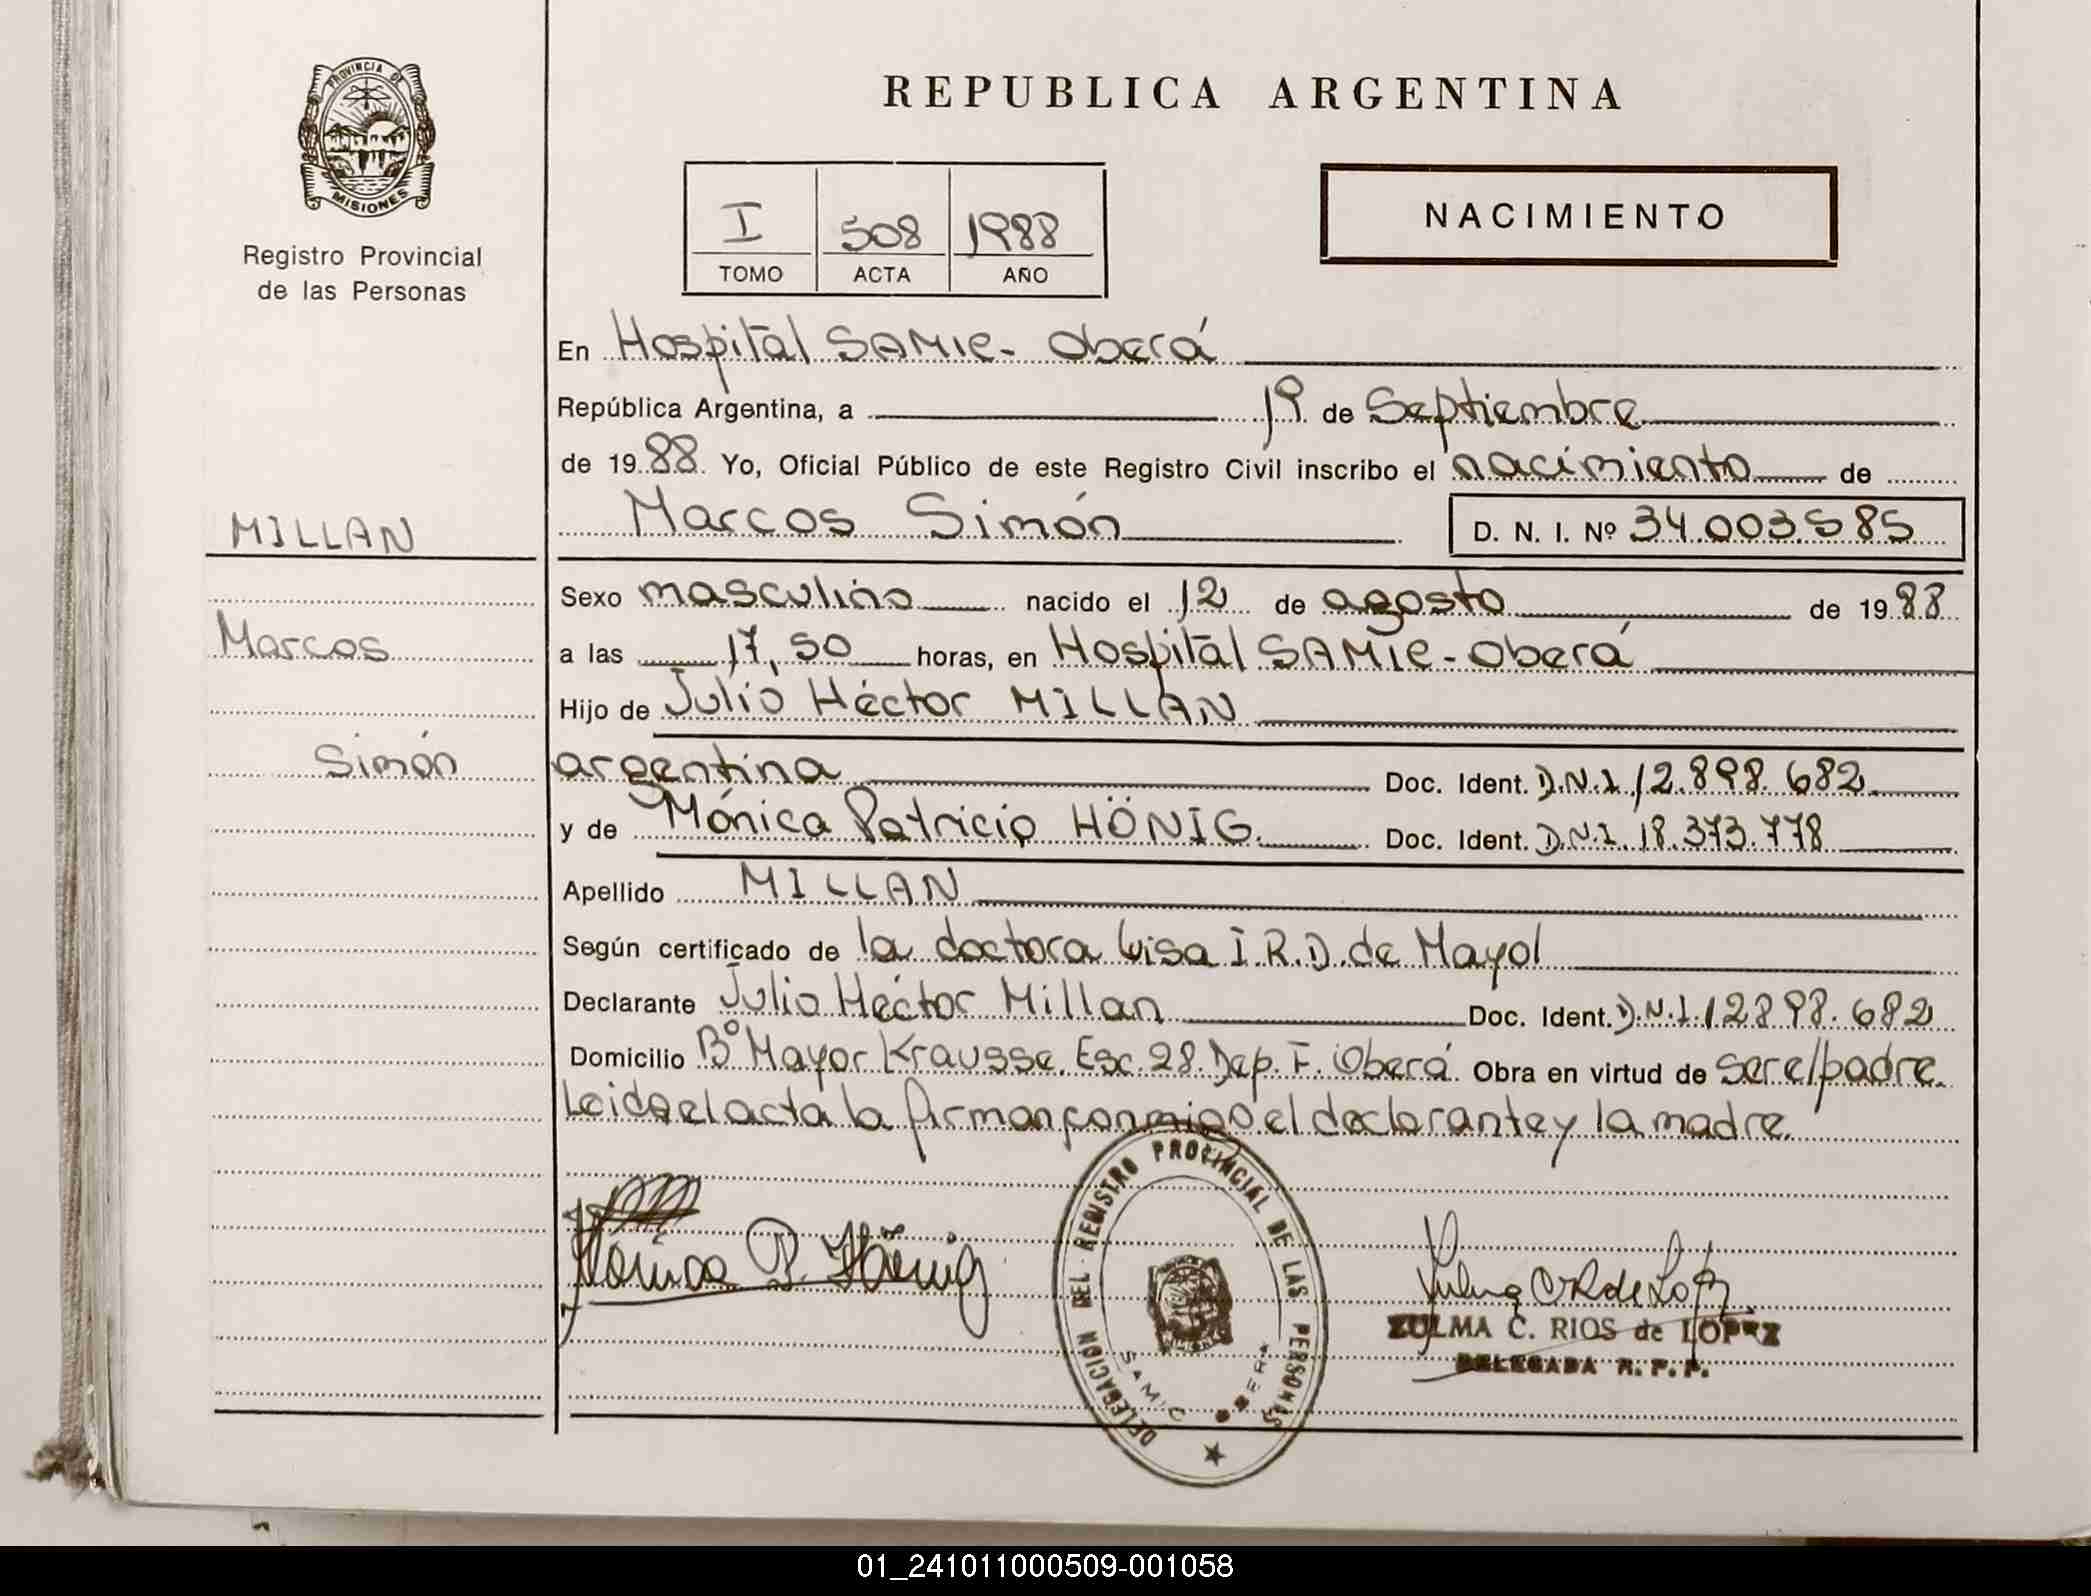 PROVINCIA DE
MISIONES
Registro Provincial
de las Personas
REPUBLICA ARGENTINA
I 508 1988
TOMO ACTA AÑO
NACIMIENTO
En Hospital SAMIC - Oberá
República Argentina, a 19 de Septiembre
de 1988 Yo, Oficial Público de este Registro Civil inscribo el nacimiento de
Marcos Simón D. N. I. Nº 34.003.585
MILLAN
Marcos
Simón
Sexo masculino nacido el 12 de agosto de 1988
a las 17,50 horas, en Hospital SAMIC - Oberá
Hijo de Julio Héctor MILLAN
argentina Doc. Ident. D.N.I 12.898.682
y de Mónica Patricia HÖNIG. Doc. Ident. D.N.I. 18.373.778
Apellido MILLAN
Según certificado de la doctora Luisa I.R.D. de Mayol
Declarante Julio Héctor Millan Doc. Ident. D.N.I 12898.682
Domicilio Bº Mayor Krausse. Esc. 28. Dep. F. Oberá. Obra en virtud de ser el padre.
Leida el acta la firman conmigo el declarante y la madre.
Mónica P. Hönig
DELEGACION DEL REGISTRO PROVINCIAL DE LAS PERSONAS
SAMIC
ZULMA C. RIOS de LOPEZ
DELEGADA R. P. P.
01_241011000509-001058